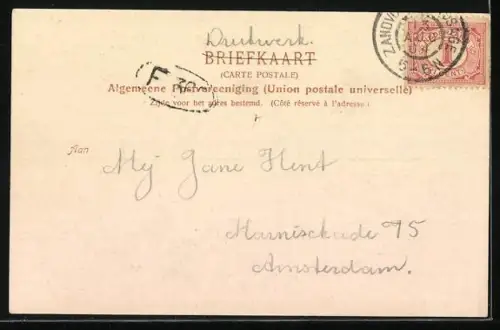 Drukwerk.
BRIEFKAART
(CARTE POSTALE)
Algemeene Postvereeniging (Union postale universelle)
Zijde voor het adres bestemd. (Côté réservé à l'adresse.)
F 30
Aan
Mej Jane Hent
75
Amsterdam.